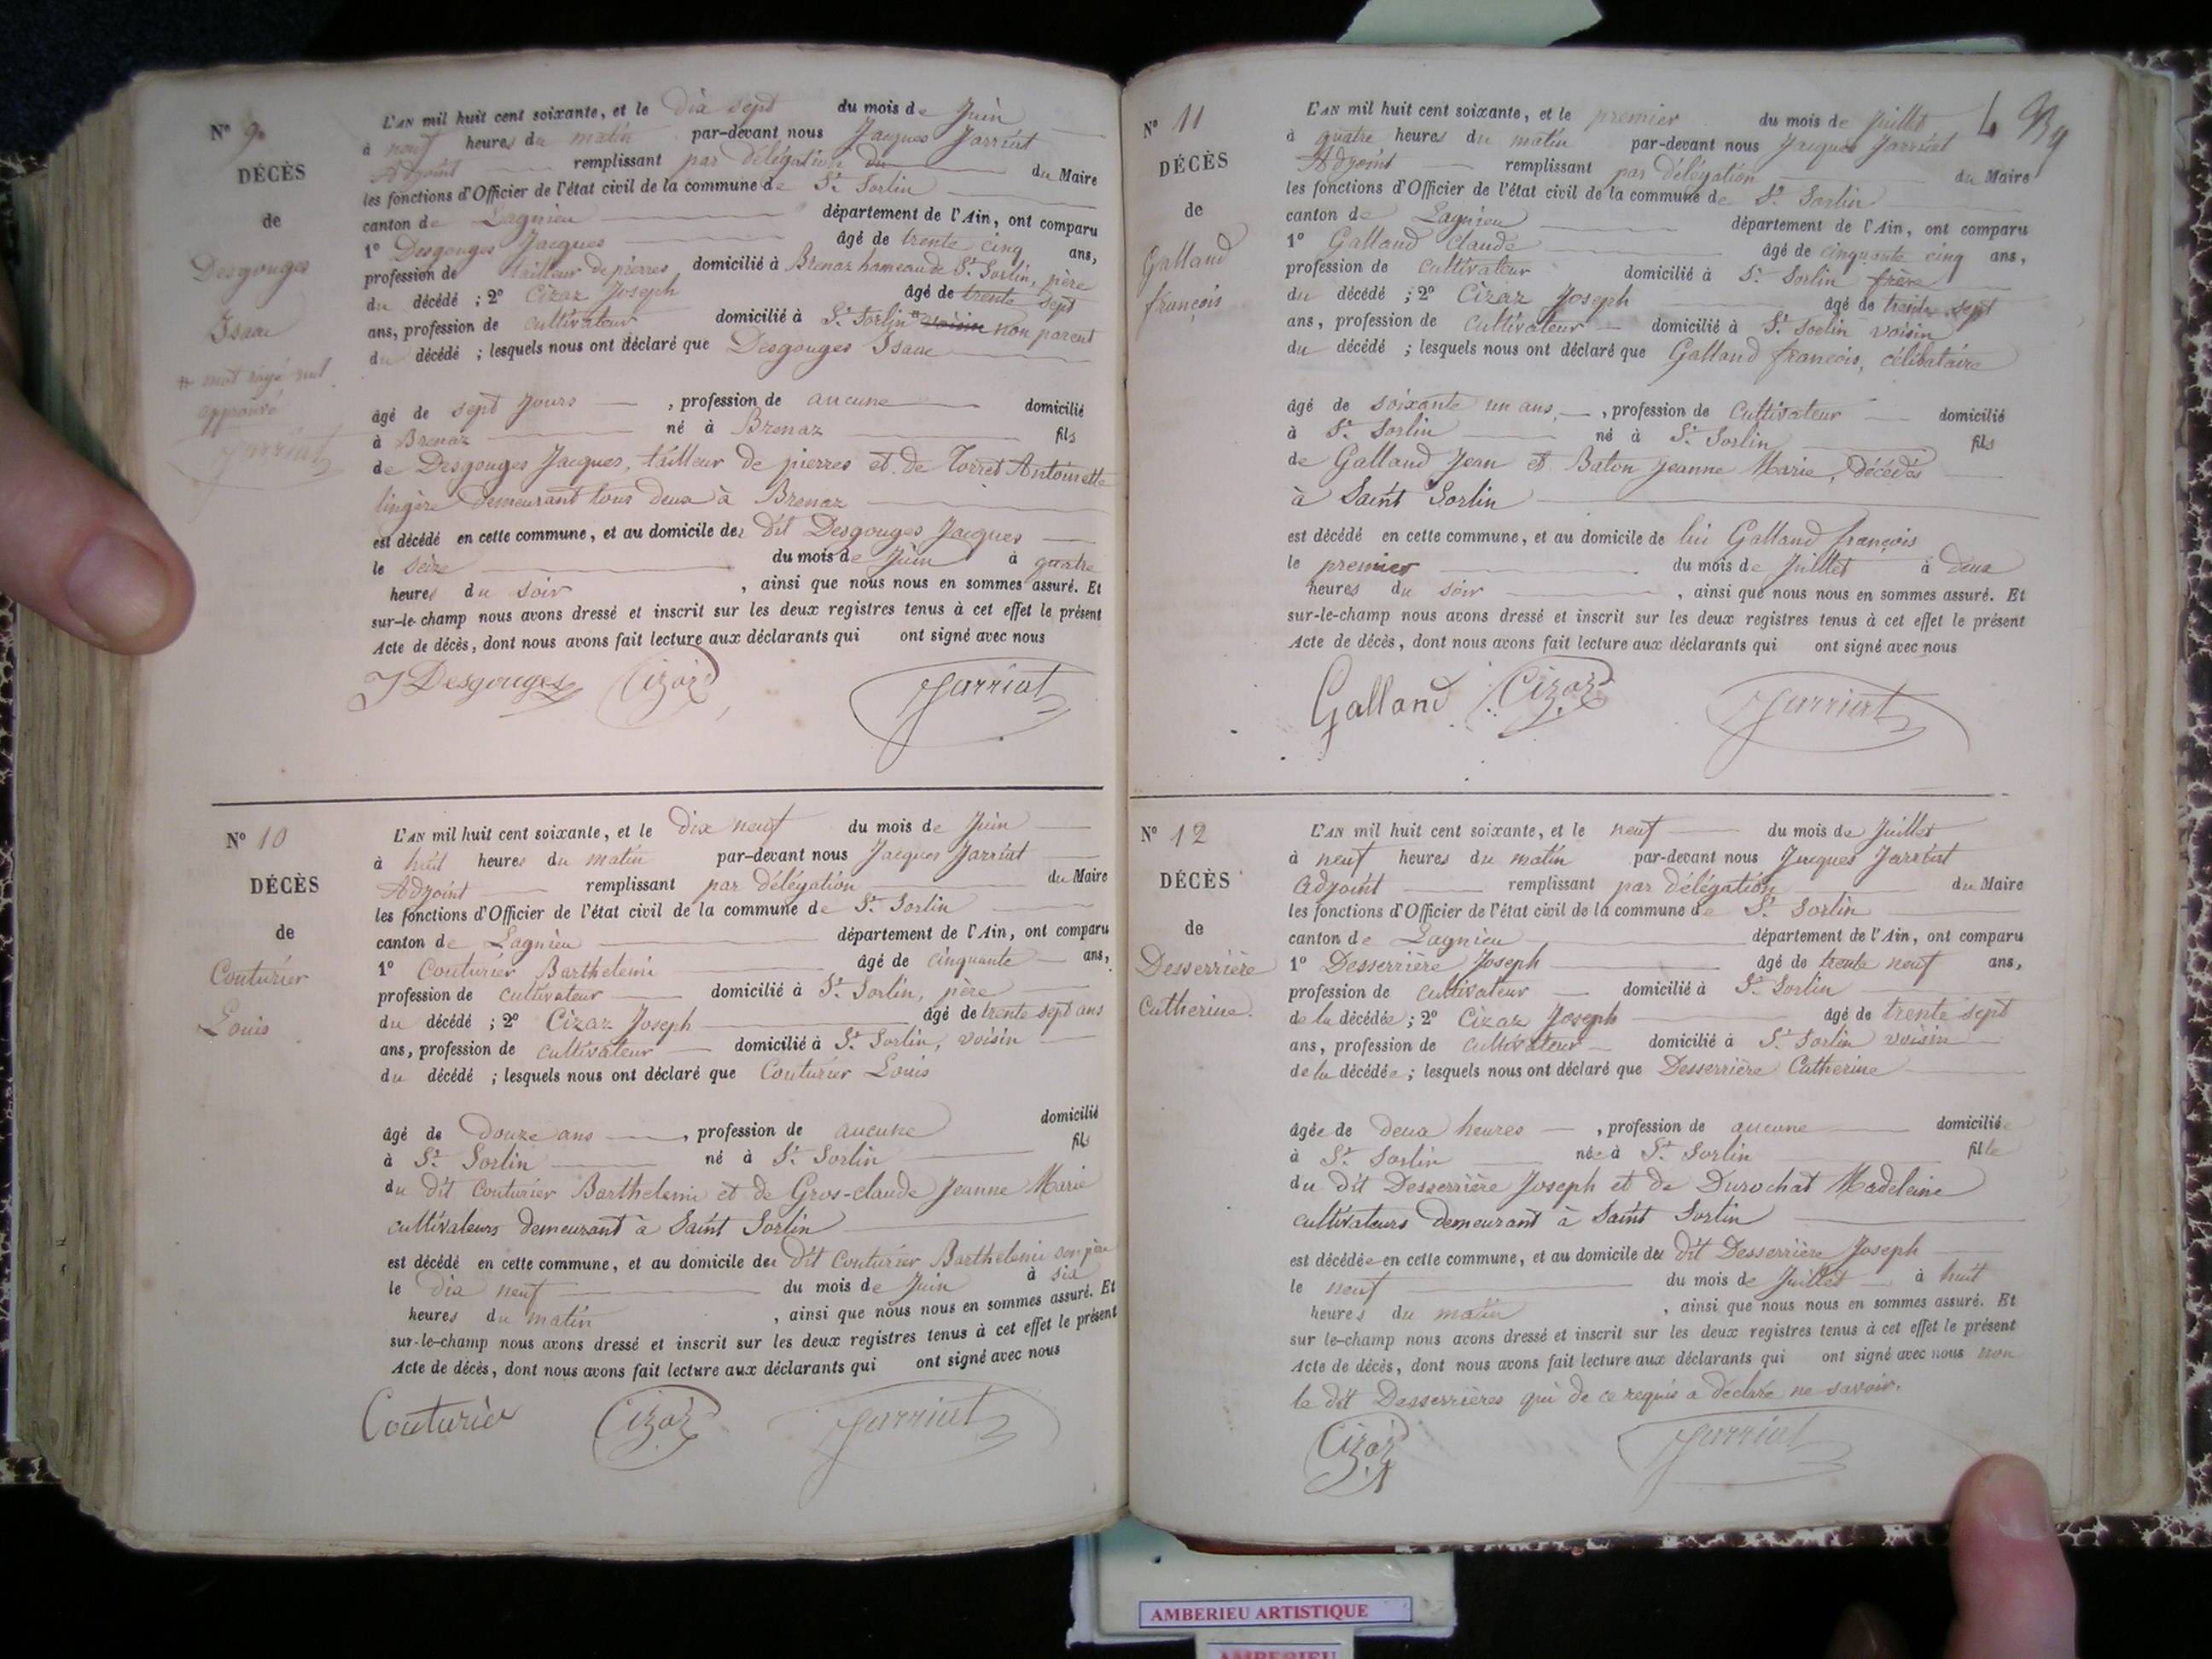 N° 9.
DÉCÈS
de
Desgouges
Isaac
# mot rayé nul
approuvé
Jarriat
L'AN mil huit cent soixante, et le dix sept du mois de Juin
à neuf heures du matin par-devant nous Jacques Jarriat
Adjoint remplissant par délégation du du Maire
les fonctions d'Officier de l'état civil de la commune de St. Sorlin
canton de Lagnieu département de l'Ain, ont comparu
1° Desgouges Jacques âgé de trente cinq ans,
profession de tailleur de pierres domicilié à Brenaz hameau de St. Sorlin, père
du décédé ; 2° Cizaz Joseph âgé de trente sept
ans, profession de cultivateur domicilié à St. Sorlin # voisin non parent
du décédé ; lesquels nous ont déclaré que Desgouges Isaac
âgé de sept jours , profession de aucune domicilié
à Brenaz né à Brenaz fils
de Desgouges Jacques, tailleur de pierres et de Torret Antoinette
lingère demeurant tous deux à Brenaz
est décédé en cette commune, et au domicile du dit Desgouges Jacques
le seize du mois de Juin à quatre
heures du soir , ainsi que nous nous en sommes assuré. Et
sur-le-champ nous avons dressé et inscrit sur les deux registres tenus à cet effet le présent
Acte de décès, dont nous avons fait lecture aux déclarants qui ont signé avec nous
J Desgouges Cizaz Jarriat
N° 10
DÉCÈS
de
Couturier
Louis
L'AN mil huit cent soixante, et le dix neuf du mois de Juin
à huit heures du matin par-devant nous Jacques Jarriat
Adjoint remplissant par délégation du Maire
les fonctions d'Officier de l'état civil de la commune de St. Sorlin
canton de Lagnieu département de l'Ain, ont comparu
1° Couturier Barthelemi âgé de cinquante ans,
profession de cultivateur domicilié à St. Sorlin, père
du décédé ; 2° Cizaz Joseph âgé de trente sept ans
ans, profession de cultivateur domicilié à St. Sorlin, voisin
du décédé ; lesquels nous ont déclaré que Couturier Louis
âgé de douze ans , profession de aucune domicilié
à St. Sorlin né à St. Sorlin fils
du dit Couturier Barthelemi et de Gros-claude Jeanne Marie
cultivateurs demeurant à Saint Sorlin
est décédé en cette commune, et au domicile du dit Couturier Barthelemi son père
le dix neuf du mois de Juin à six
heures du matin , ainsi que nous nous en sommes assuré. Et
sur-le-champ nous avons dressé et inscrit sur les deux registres tenus à cet effet le présent
Acte de décès, dont nous avons fait lecture aux déclarants qui ont signé avec nous
Couturier Cizaz Jarriat
N° 11
DÉCÈS
de
Galland
françois
L'AN mil huit cent soixante, et le premier du mois de Juillet
à quatre heures du matin par-devant nous Jacques Jarriat
Adjoint remplissant par délégation du Maire
les fonctions d'Officier de l'état civil de la commune de St. Sorlin
canton de Lagnieu département de l'Ain, ont comparu
1° Galland Claude âgé de cinquante cinq ans,
profession de cultivateur domicilié à St. Sorlin frère
du décédé ; 2° Cizaz Joseph âgé de trente sept
ans, profession de cultivateur domicilié à St. Sorlin voisin
du décédé ; lesquels nous ont déclaré que Galland françois, célibataire
âgé de soixante un ans, , profession de Cultivateur domicilié
à St. Sorlin né à St. Sorlin fils
de Galland Jean et Baton Jeanne Marie, décédés
à Saint Sorlin
est décédé en cette commune, et au domicile de lui Galland françois
le premier du mois de Juillet à deux
heures du soir , ainsi que nous nous en sommes assuré. Et
sur-le-champ nous avons dressé et inscrit sur les deux registres tenus à cet effet le présent
Acte de décès, dont nous avons fait lecture aux déclarants qui ont signé avec nous
Galland Cizaz Jarriat
N° 12
DÉCÈS
de
Desserrière
Catherine.
L'AN mil huit cent soixante, et le neuf du mois de Juillet
à neuf heures du matin par-devant nous Jacques Jarriat
adjoint remplissant par délégation du Maire
les fonctions d'Officier de l'état civil de la commune de St. Sorlin
canton de Lagnieu département de l'Ain, ont comparu
1° Desserrière Joseph âgé de trente neuf ans,
profession de cultivateur domicilié à St. Sorlin
de la décédée ; 2° Cizaz Joseph âgé de trente sept
ans, profession de cultivateur domicilié à St. Sorlin voisin
de la décédée ; lesquels nous ont déclaré que Desserrière Catherine
âgée de deux heures , profession de aucune domiciliée
à St. Sorlin née à St. Sorlin fille
du dit Desserrière Joseph et de Durochat Madeleine
cultivateurs demeurant à Saint Sorlin
est décédée en cette commune, et au domicile du dit Desserrière Joseph
le neuf du mois de Juillet à huit
heures du matin , ainsi que nous nous en sommes assuré. Et
sur le-champ nous avons dressé et inscrit sur les deux registres tenus à cet effet le présent
Acte de décès, dont nous avons fait lecture aux déclarants qui ont signé avec nous non
le dit Desserrières qui de ce requis a déclaré ne savoir.
Cizaz Jarriat
AMBERIEU ARTISTIQUE
AMBERIEU